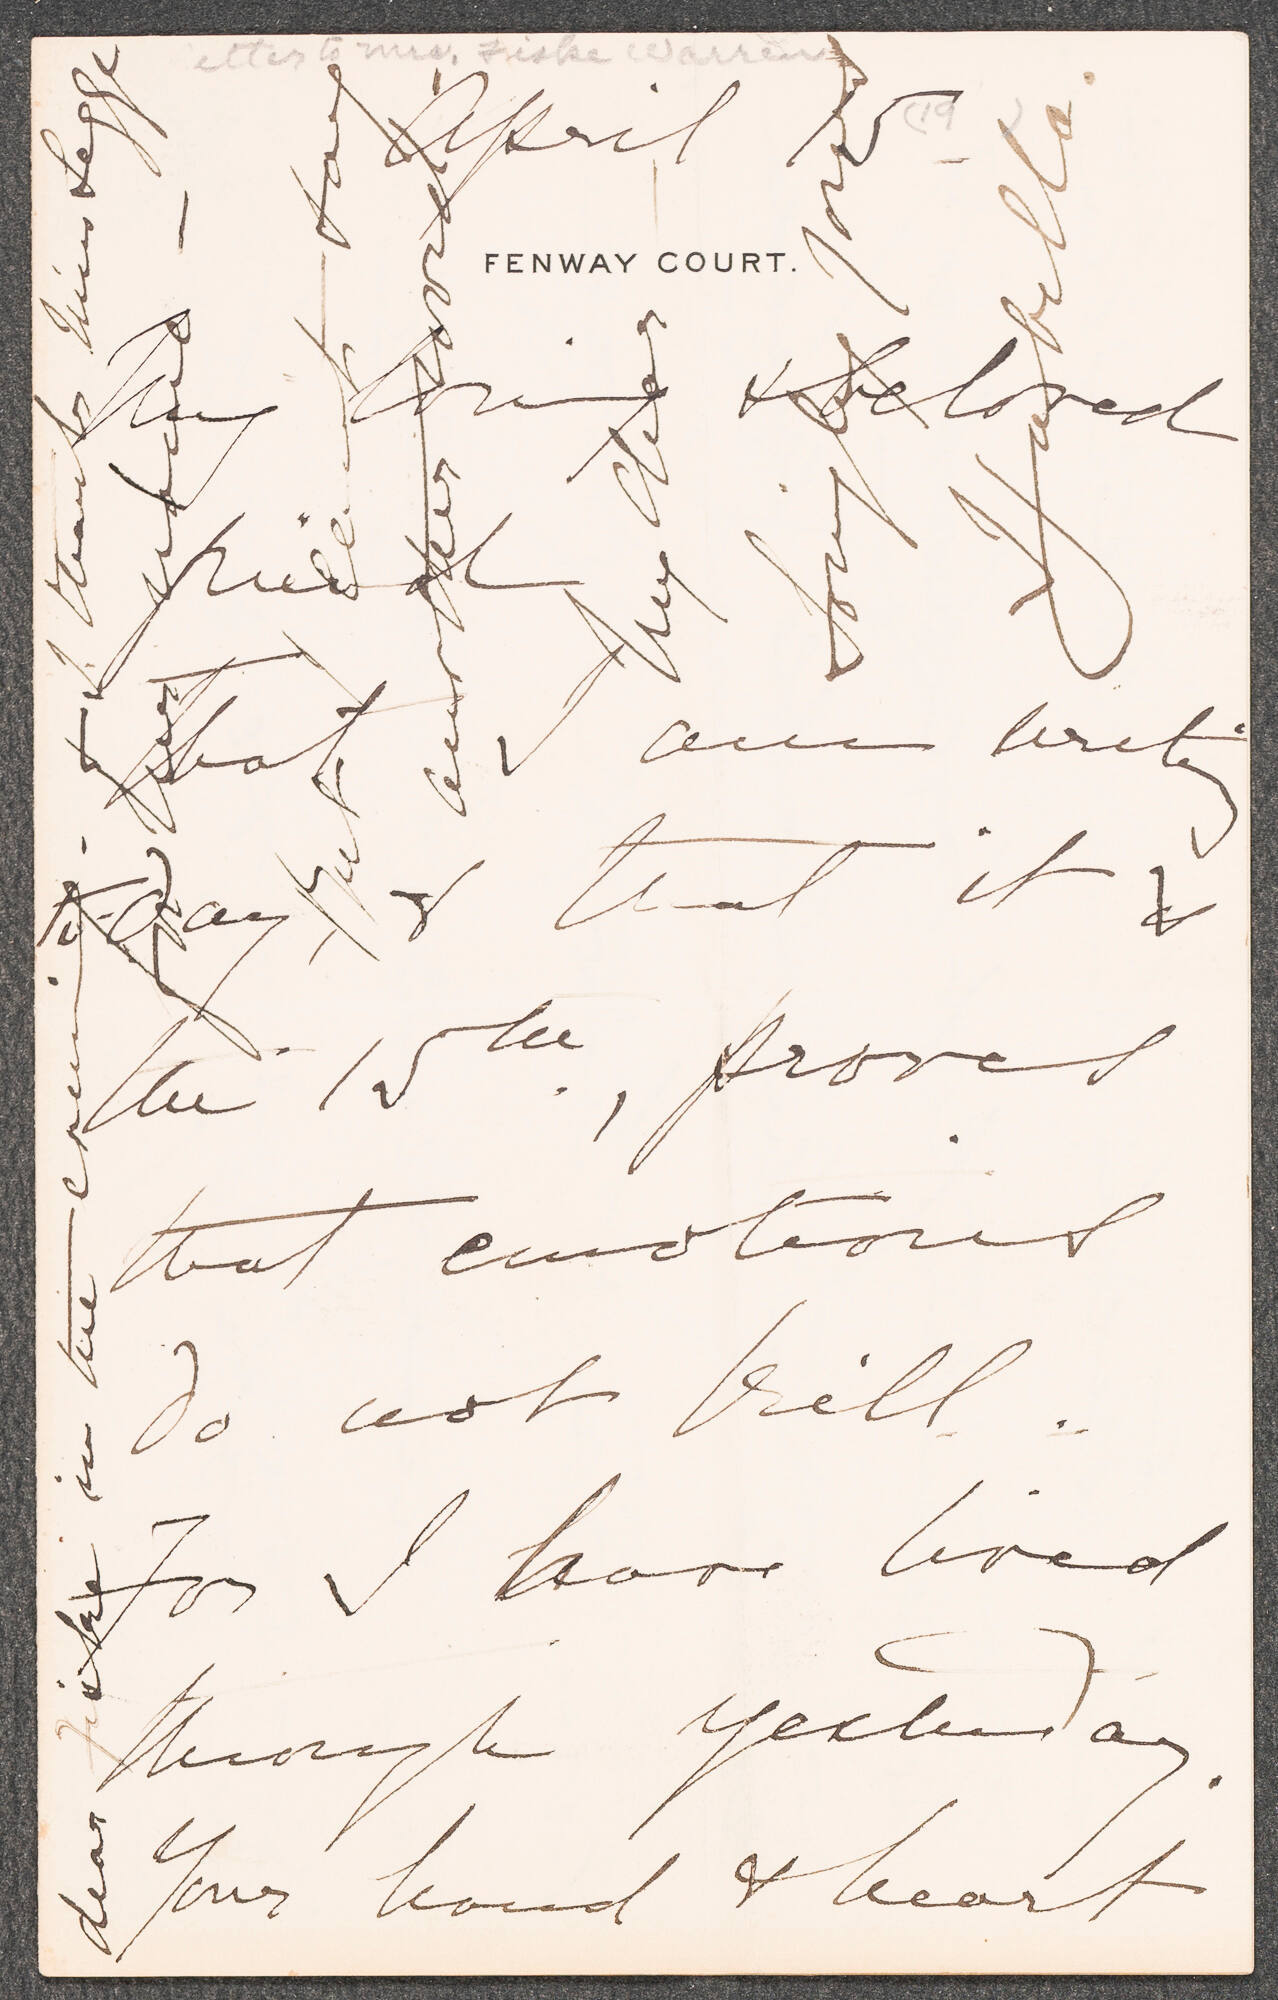 etter to Mrs. Fiske Warren
April 15 (19  )
FENWAY COURT.
My loving & beloved
friend
That I am writing
to-day & that it is
the 15th., proves
that emotions
do not kill.
For I have lived
through yesterday.
Your hand & heart
dear Fiske in the evening - & I thank Miss Legge
for
But to say
another word
My dear
loving & Yours
Isabella.